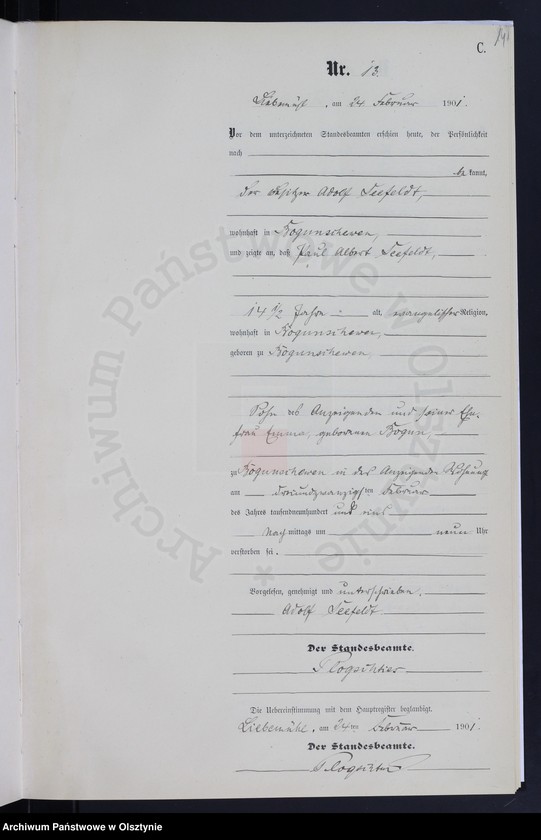 141
C.
Nr. 13.
Liebemühl, am 24 Februar 1901.
Vor dem unterzeichneten Standesbeamten erschien heute, der Persönlichkeit
nach
be kannt,
der Besitzer Adolf Seefeldt,
wohnhaft in Bogunschewen,
und zeigte an, daß Paul Albert Seefeldt,
14 1/2 Jahre alt, evangelischer Religion,
wohnhaft in Bogunschewen,
geboren zu Bogunschewen,
Sohn des Anzeigenden und seiner Ehe-
frau Emma, geborenen Bogun,
zu Bogunschewen in des Anzeigenden Wohnung
am dreiundzwanzigsten Februar
des Jahres tausendneunhundert und eins
Nach mittags um neun Uhr
verstorben sei.
Vorgelesen, genehmigt und unterschrieben.
Adolf Seefeldt
Der Standesbeamte.
Die Uebereinstimmung mit dem Hauptregister beglaubigt.
Liebemühl, am 24ten Februar 1901.
Der Standesbeamte.
Archiwum Państwowe w Olsztynie *
Archiwum Państwowe w Olsztynie